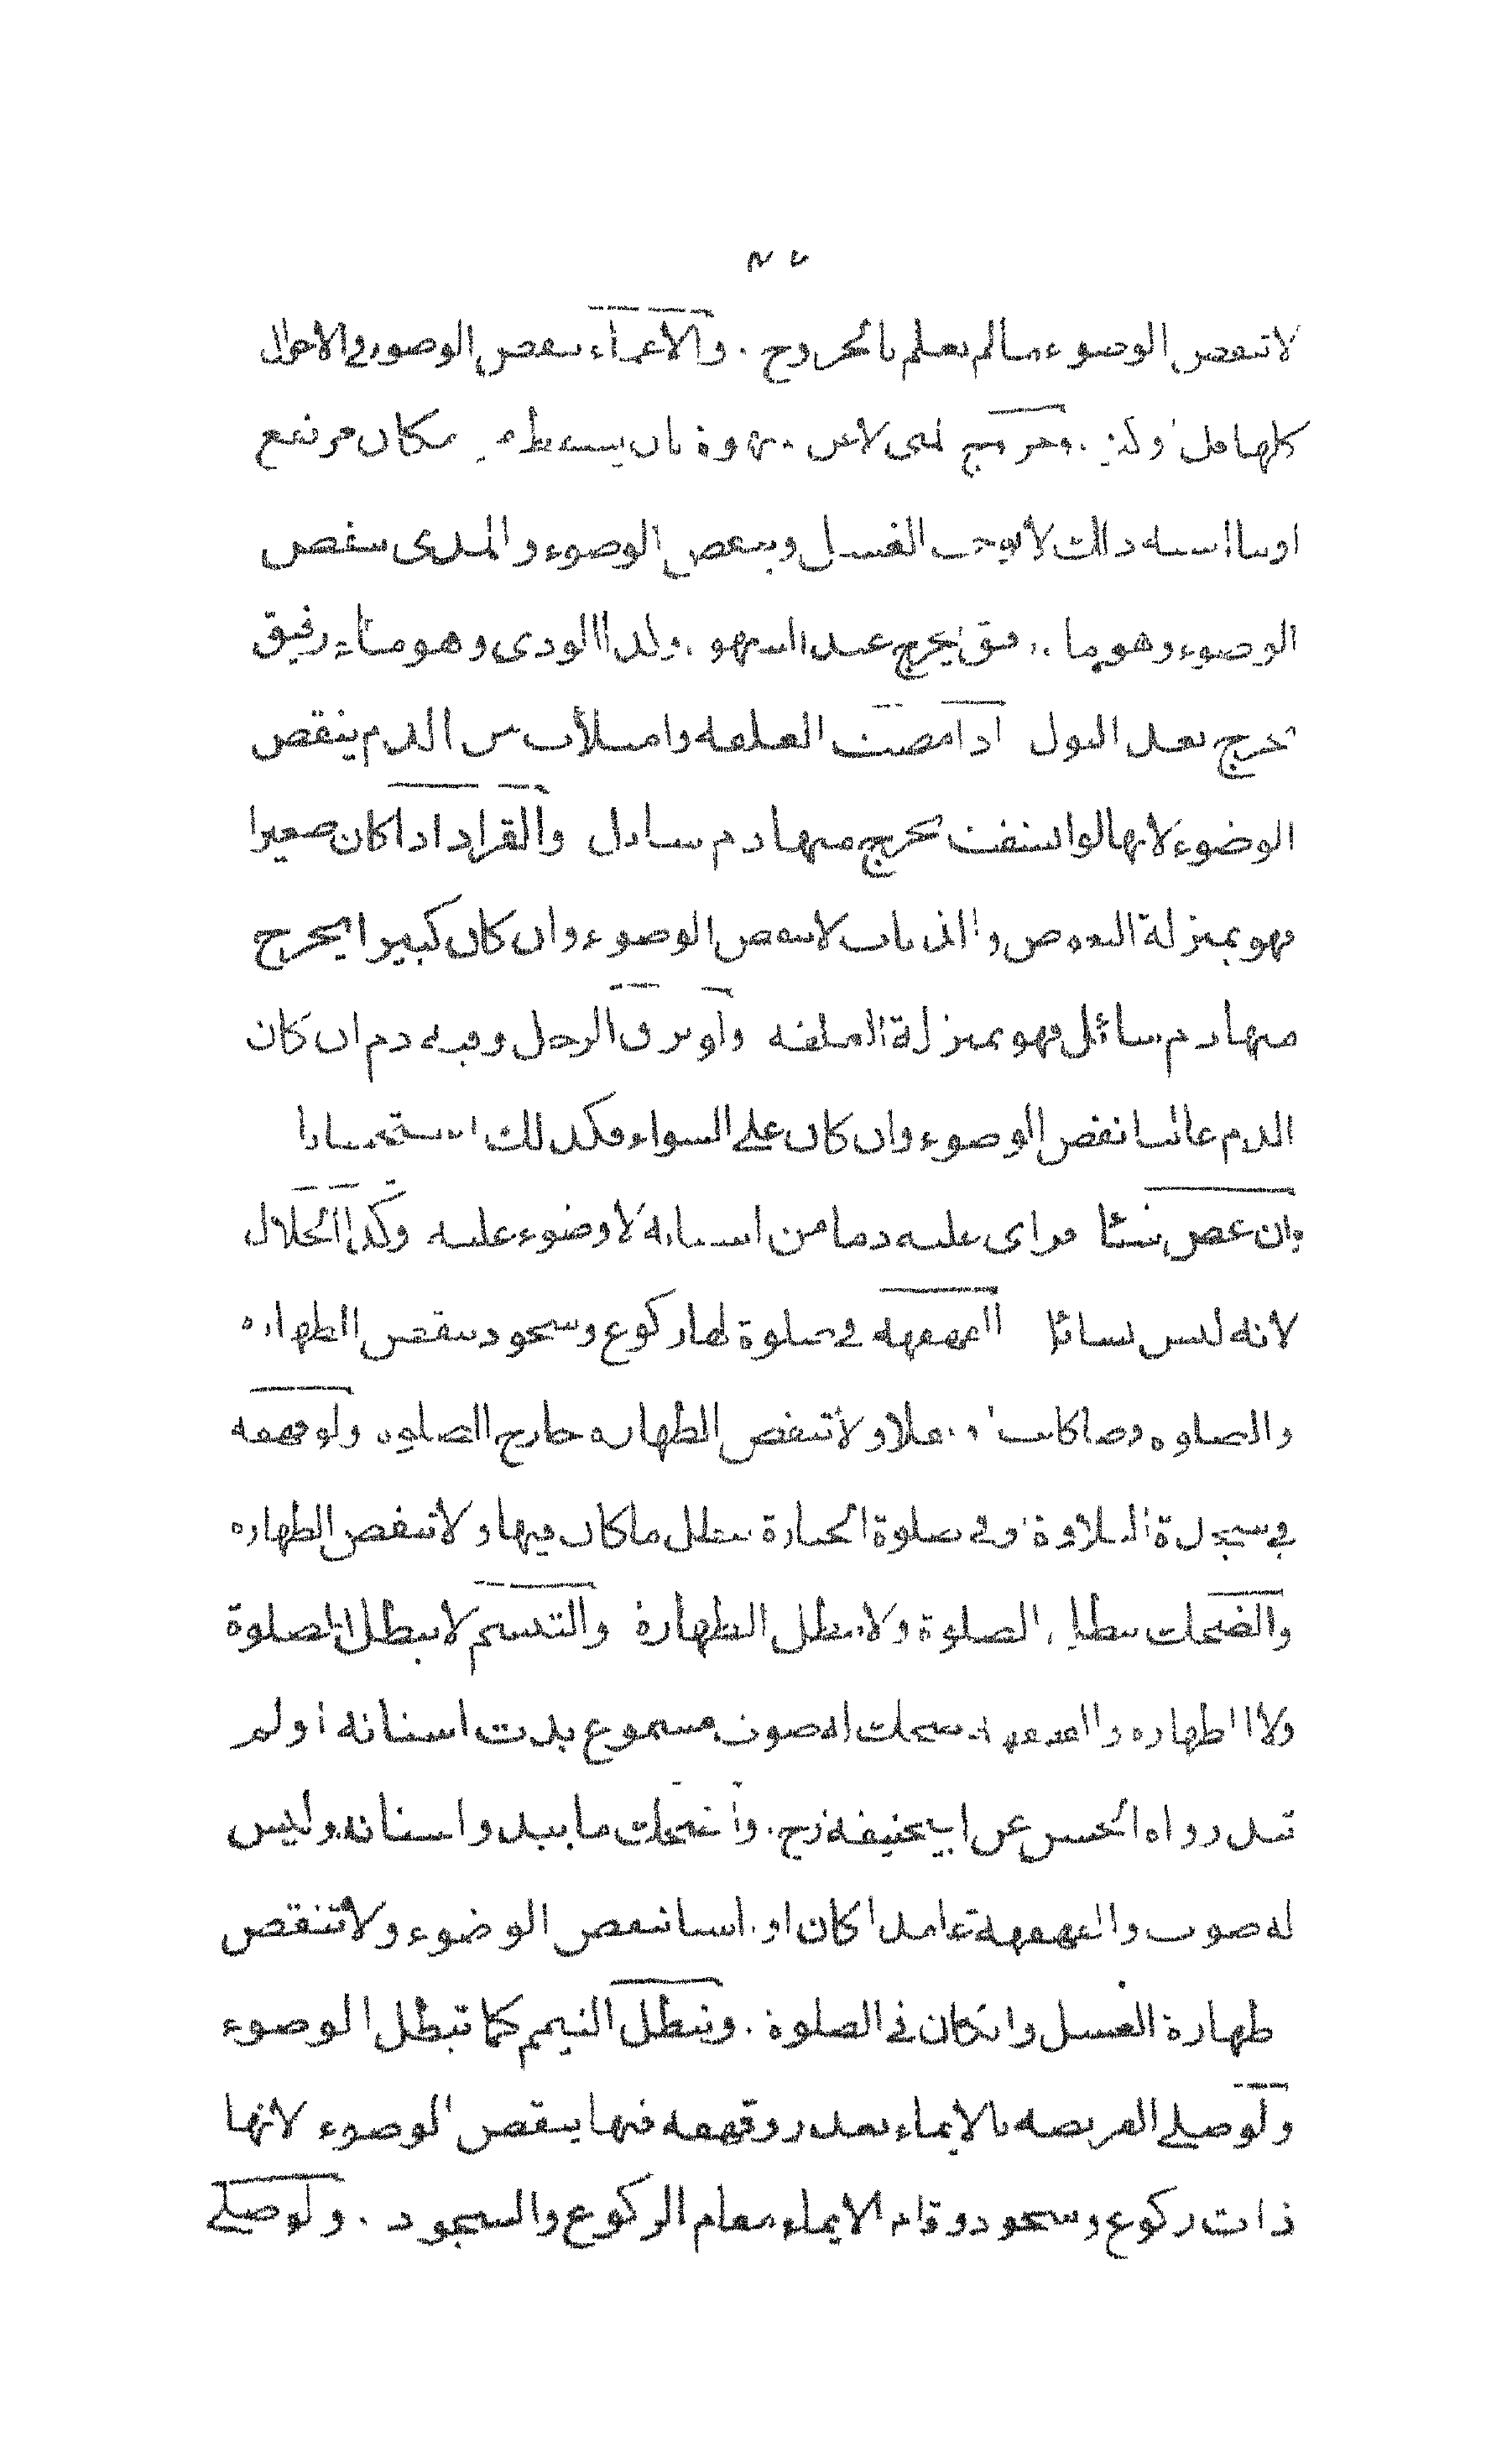 لا تنقض الوضوء ما لم يعلم بالخروج . والاغماء ينقض الوضوء في الاحوال
كلها قل او كثر . وخروج المنى لا عن شهوة بان يسقط من مكان مرتفع
او ما اشبه ذالك لا يوجب الغسل وينقض الوضوء والمذى ينقض
الوضوء وهو ماء رقيق يخرج عند الشهوة وكذا الودى وهو ماء رقيق
يخرج بعد البول اذا مصت العلقه وامتلأت من الدم ينقض
الوضوء لانها لو انشقت يخرج منها دم سائل والقراد اذا كان صغيرا
فهو بمنزلة البعوض والذباب لا ينقض الوضوء وان كان كبيرا يخرج
منها دم سائل فهو بمنزلة العلقه ولو بزق الرجل وفيه دم ان كان
الدم غالبا نقض الوضوء وان كان على السواء فكذلك استحسانا
وان عض شيئا فراى عليه دما من اسنانه لا وضوء عليه وكذا الخلال
لانه ليس بسائل القهقهه في صلوة لها ركوع وسجود ينقض الطهاره
والصلوه فرضا كانت او نفلا ولا تنقض الطهاره خارج الصلوه ولو قهقه
في سجدة التلاوة او في صلوة الجنازة يبطل ما كان فيها ولا تنقض الطهاره
والضحك يبطل الصلوة ولا يبطل الطهارة والتبسم لا يبطل الصلوة
ولا الطهاره والقهقهه ضحك له صوت مسموع بدت اسنانه او لم
تبد رواه الحسن عن ابيحنيفه رح . والضحك ما يبدو اسنانه وليس
له صوت والقهقهة عامدا كان او ناسيا تنقض الوضوء ولا تنقض
طهارة الغسل وان كان في الصلوة . وتبطل التيمم كما تبطل الوضوء
ولو صلى الفريضه بالايماء بعذر وقهقه فيها ينقض الوضوء لانها
ذات ركوع وسجود وقام الايماء مقام الركوع والسجود . ولو صلى